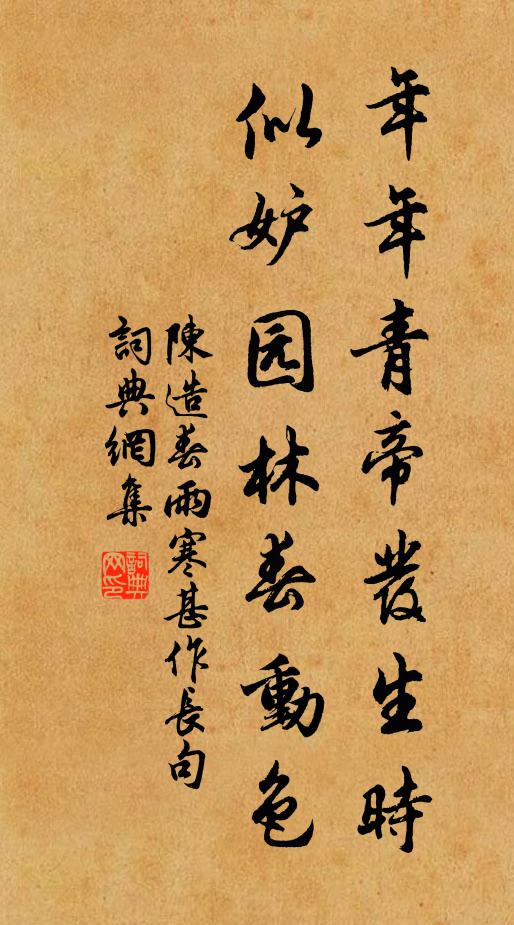 年年青帝發生時
似妒园林春動色
陳造春雨寒甚作長句
詞典網集
詞典網印